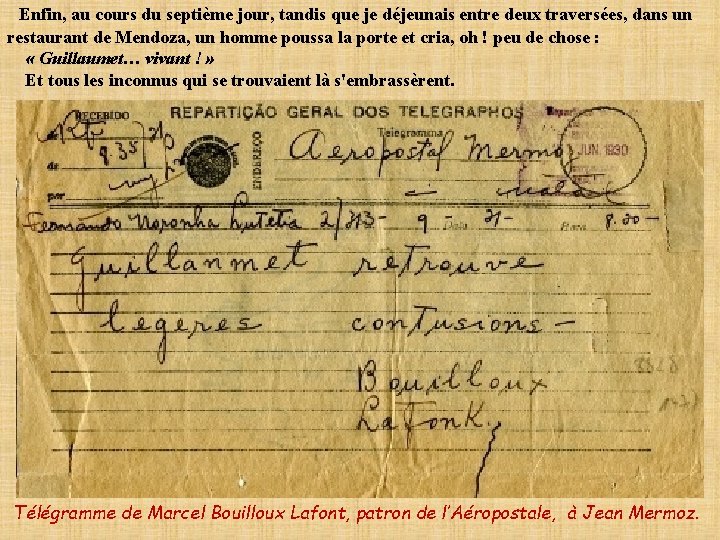 Enfin, au cours du septième jour, tandis que je déjeunais entre deux traversées, dans un
restaurant de Mendoza, un homme poussa la porte et cria, oh ! peu de chose :
« Guillaumet… vivant ! »
Et tous les inconnus qui se trouvaient là s'embrassèrent.
RECEBIDO
REPARTIÇÃO GERAL DOS TELEGRAPHOS
Telegramma
de
9.35
ENDEREÇO
Aeropostal Mermoz
JUN 1930
de
por
Fernando Noronha Lutetia 2/313- 9- Data 21- Hora 8.20-
Guillanmet retrouve
legeres contusions -
Bouilloux
Lafonk.
Télégramme de Marcel Bouilloux Lafont, patron de l’Aéropostale, à Jean Mermoz.